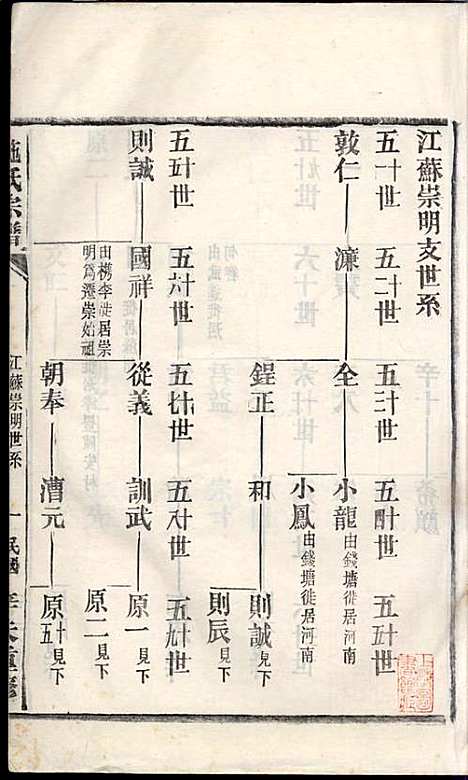 江蘇崇明支世系
五十一世 五十二世 五十三世 五十四世 五十五世
敦仁 濂 全 小龍 由錢塘徙居河南
小鳳 由錢塘徙居河南
鋥正 和 則誠 見下
則辰
五十五世 五十六世 五十七世 五十八世 五十九世
則誠 國祥 從義 訓武 原一 見下
由檇李徙居崇
明爲遷崇始祖
原二 見下
朝奉 漕元 原五十 見下
施氏宗譜 江蘇崇明世系 一 民國 重修